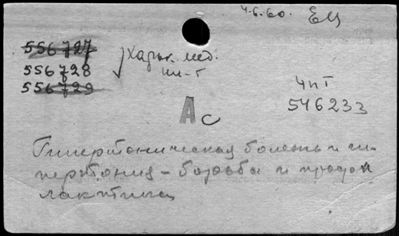 4.6.60. ЕЦ
556727
556728
556729
Харьк. мед.
ин-т
Ас
4пТ
546233
Гипертоническая болезнь и ги-
пертония - борьба и профи
лактика